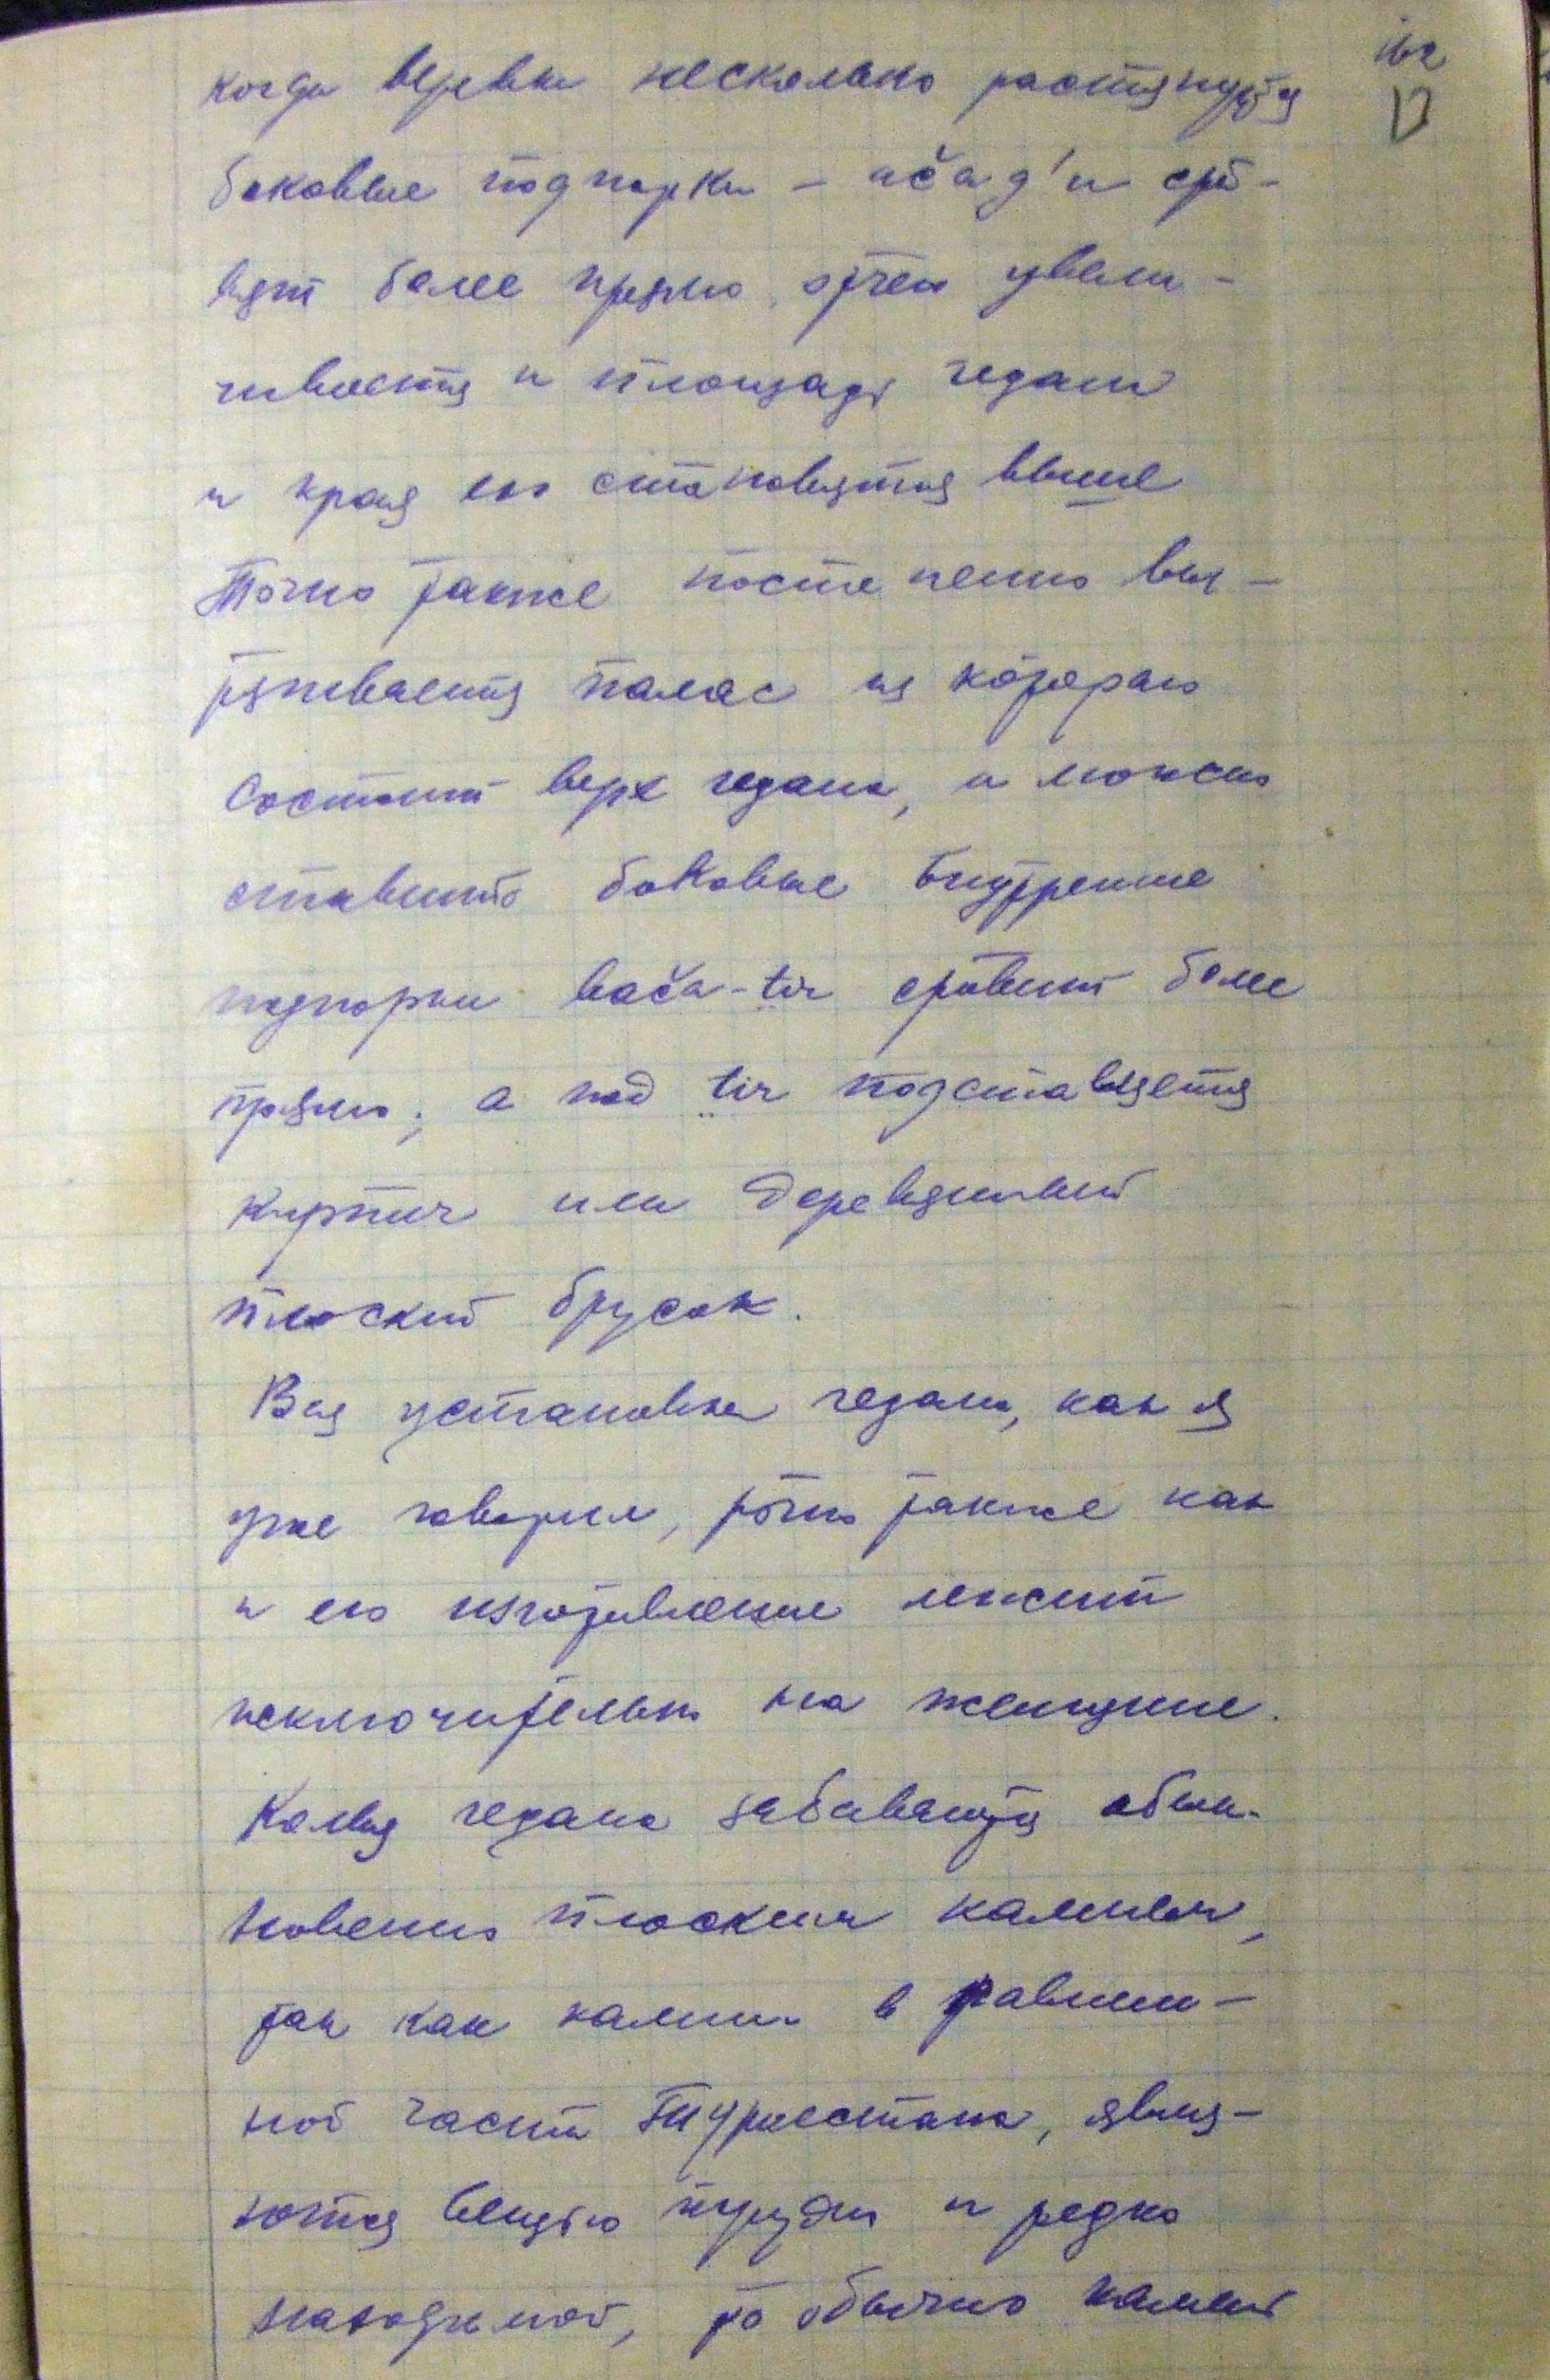 когда веревки несколько растянутся
боковые подпорки – uča g'u ста-
вят более прямо, этим увели-
чивается и площадь чедана
и края его становятся выше
Точно также постепенно вы-
тягивается палас из которого
состоит верх чедана, и можно
ставить боковые внутренние
подпорки bača-tir ставит более
прямо; а под tir подставляется
кирпич или деревянный
плоский брусок.
Вся установка чедана, как я
уже говорил, точно также как
и его изготовление лежит
исключительно на женщине.
Колья чедана забиваются обык-
новенно плоским камнем,
так как камни в равнин-
ной части Туркестана, явля-
ются вещью трудно и редко
находимой, то обычно камень